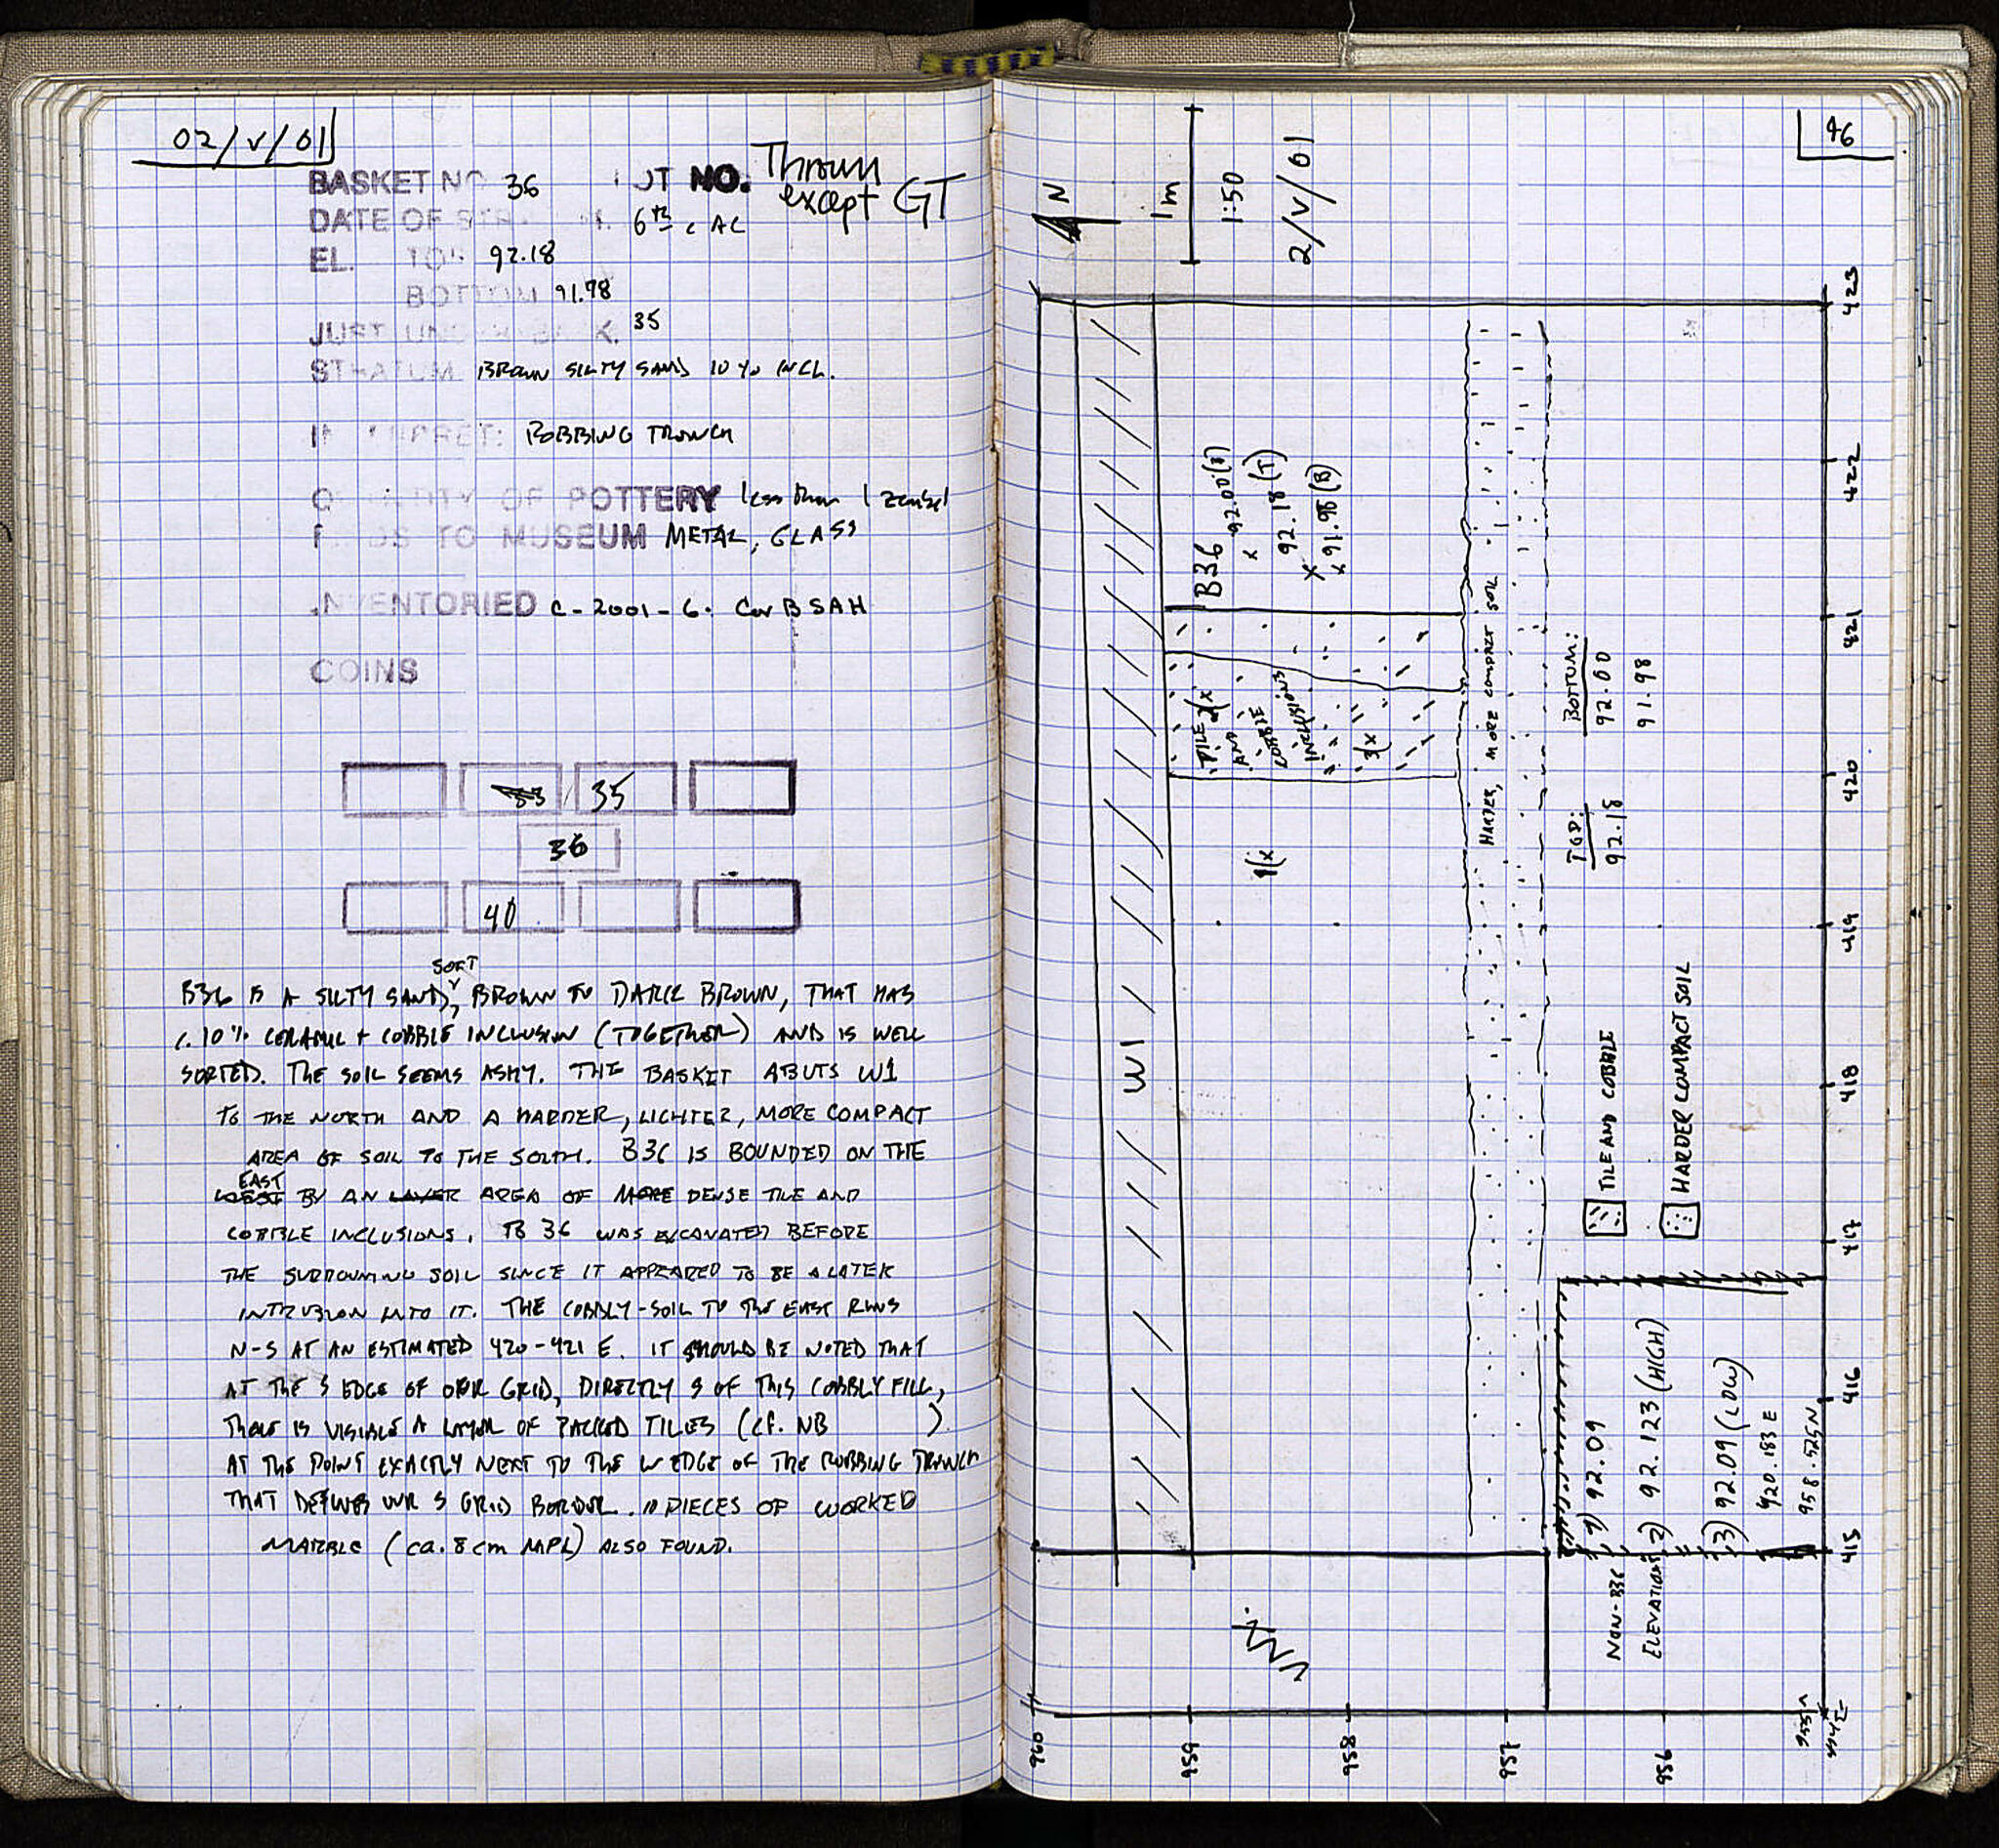 02/V/01
BASKET NO 36 LOT NO. Thrown except GT
DATE OF STRATUM. 6th c AC
EL. TOP 92.18
BOTTOM 91.98
JUST UNDER BASK. 35
STRATUM BROWN SILTY SAND 10% INCL.
INTERPRET: ROBBING TRENCH
QUANTITY OF POTTERY less than 1 zembil
FINDS TO MUSEUM METAL, GLASS
INVENTORIED C-2001-6. Cor B SAH
COINS
35
36
40
SOFT
B36 IS A SILTY SAND, BROWN TO DARK BROWN, THAT HAS
c. 10% CERAMIC + COBBLE INCLUSION (TOGETHER) AND IS WELL
SORTED. THE SOIL SEEMS ASHY. THE BASKET ABUTS W1
TO THE NORTH AND A HARDER, LIGHTER, MORE COMPACT
AREA OF SOIL TO THE SOUTH. B36 IS BOUNDED ON THE
EAST
WEST BY AN LAYER AREA OF MORE DENSE TILE AND
COBBLE INCLUSIONS. B 36 WAS EXCAVATED BEFORE
THE SURROUNDING SOIL SINCE IT APPEARED TO BE A LATER
INTRUSION INTO IT. THE COBBLY-SOIL TO THE EAST RUNS
N-S AT AN ESTIMATED 420-421 E. IT SHOULD BE NOTED THAT
AT THE S EDGE OF OUR GRID, DIRECTLY S OF THIS COBBLY FILL,
THERE IS VISIBLE A LAYER OF PACKED TILES (CF. NB ).
AT THE POINT EXACTLY NEXT TO THE W EDGE OF THE ROBBING TRENCH
THAT DEFINES OUR S GRID BORDER. 11 PIECES OF WORKED
MARBLE (ca. 8cm MPL) ALSO FOUND.
46
N
1m
1:50
2/V/01
423
422
421
420
419
418
417
416
415
B36
x 92.00(B)
92.18 (T)
x
x 91.98 (B)
TILE 2(x
AND
COBBLE
INCLUSIONS
3(x
1(x
W1
HARDER, MORE COMPACT SOIL
TOP:
92.18
BOTTOM:
92.00
91.98
TILE AND COBBLE
HARDER COMPACT SOIL
NON-B36
ELEVATIONS
1) 92.09
2) 92.123 (HIGH)
3) 92.09 (LOW)
420.183 E
958.525N
960
959
958
957
956
955N
414E